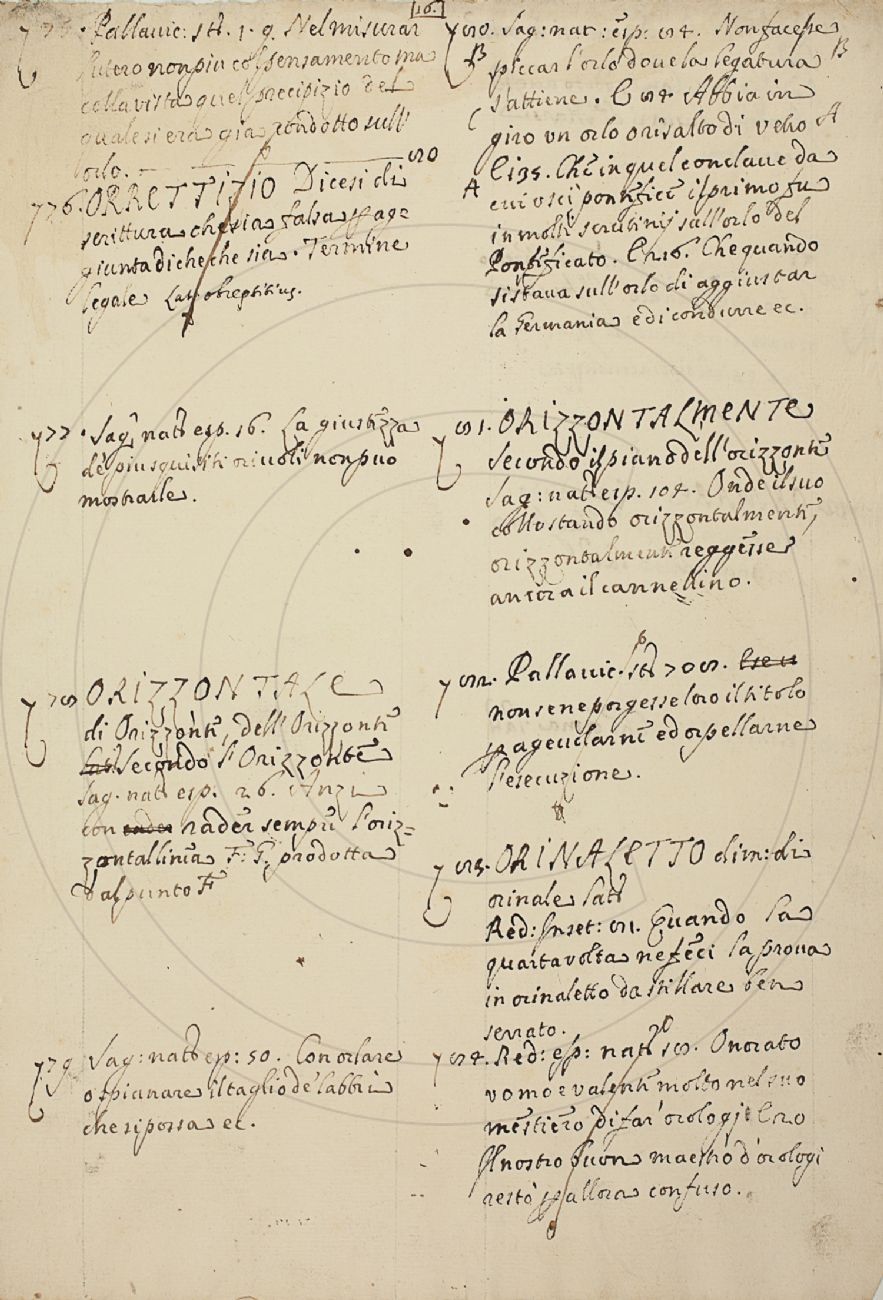 [16.]
775. Pallavic: Stí. 1. 9. Nel misurar
l'utero non più col pensamento ma
colla vista quel precipizio del
quale si era già condotto sull'
orlo.
776. ORRETTIZIO Dicesi di
scrittura che sia falsa p ag=
giunta di che che sia. Termine
legale Lat: obreptitius.
777. Sag: nat: esp. 16. La giustezza
de' più squisiti orivoli non può
mostrarle.
778 ORIZZONTALE
di Orizzonte, dell'Orizzonte
Secondo l'Orizzonte
Sag. nat: esp. 26. Anzi
con rader sempre l'oriz=
zontal linea F: G. prodotta
dal punto F
779 Sag: nat: esp: 50. Con orlare
o spianare il taglio de' labbri
che si possa ec.
780. Sag: nat: esp: 84. Non facesse
B spiccar l'orlo dove la legatura B
s'attiene. E 84 Abbia in
C giro un orlo o risalto di vetro A
E 135. Che in quel conclave da
A cui uscì pontefice il primo fu
in molti scrutinij sull'orlo del
Pontificato. E 216. Che quando
si stava sull'orlo di aggiustar
la Germania e di condurre ec.
781. ORIZZONTALMENTE
Secondo il piano dell'orizzonte
Sag: nat: esp. 104. Onde il suo
collo stando orizzontalmente,
orizzontalmente reggesse
ancora il cannellino.
782. Pallavic. Stí 708.
non se ne porgesse loro il titolo
p agevolarne ed orpellarne
l'esecuzione.
783. ORINALETTO dim: di
orinale Lat:
Red: Inset: 81. Quando la
quarta volta ne feci la prova
in orinaletto da stillare ben
serrato.
784. Red: esp: nat: 58. Onorato
uomo e valente molto nel suo
mestiero di far' orologj E 20
Il nostro buon maestro d'orologi
restò p allora confuso.